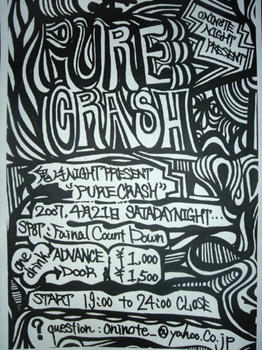 ONINOTE
NIGHT
PRESENT
PURE
CRASH
NIGHT PRESENT
"PURE CRASH"
2007. 4月21日 SATADAY NIGHT...
SPOT: Count Down
one drink
ADVANCE ¥1,000
DOOR ¥1,500
START 19:00 to 24:00 CLOSE
? question : oninote_@yahoo.co.jp